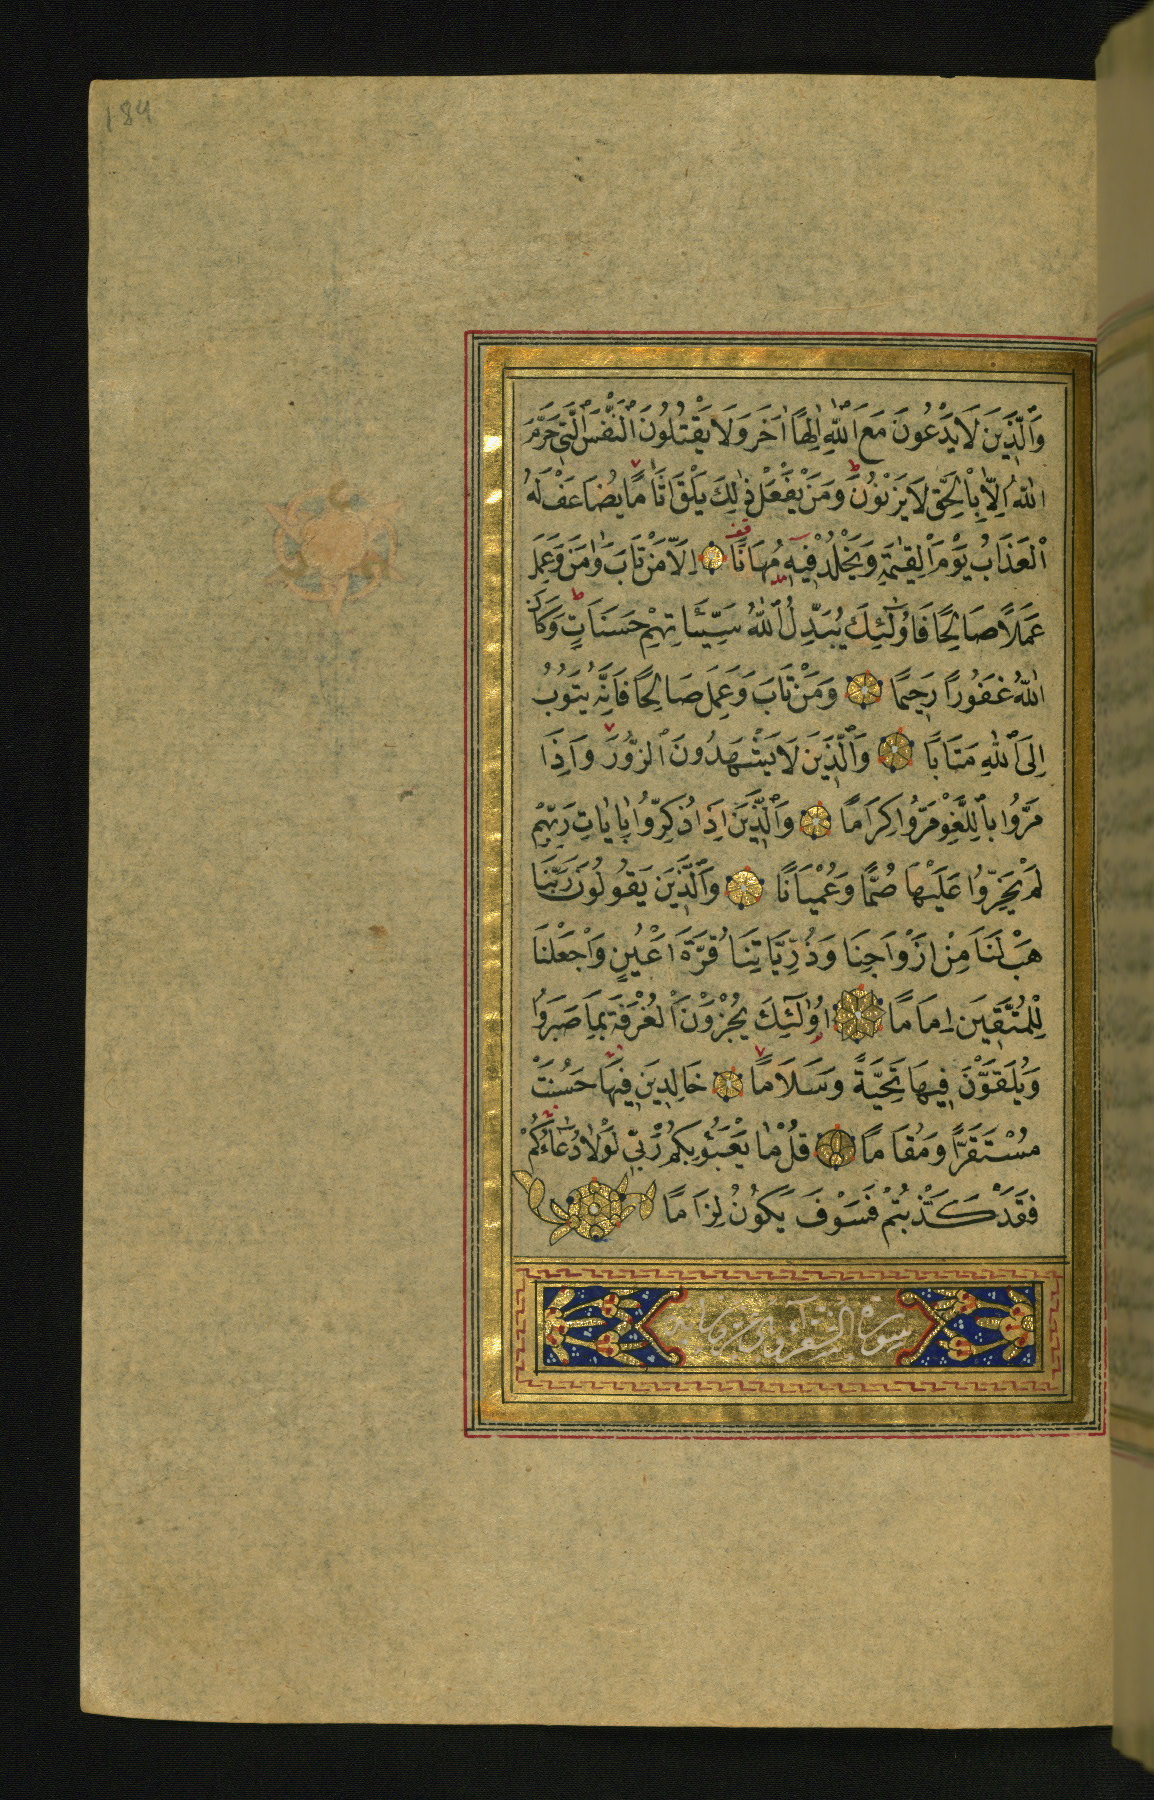 184
وَالَّذِينَ لَا يَدْعُونَ مَعَ اللّٰهِ اِلٰهًا اٰخَرَ وَلَا يَقْتُلُونَ النَّفْسَ الَّتِي حَرَّمَ
اللّٰهُ اِلَّا بِالْحَقِّ وَلَا يَزْنُونَ وَمَنْ يَفْعَلْ ذٰلِكَ يَلْقَ اَثَامًا يُضَاعَفْ لَهُ
الْعَذَابُ يَوْمَ الْقِيٰمَةِ وَيَخْلُدْ فِيهِ مُهَانًا اِلَّا مَنْ تَابَ وَاٰمَنَ وَعَمِلَ
عَمَلًا صَالِحًا فَاُولٰٓئِكَ يُبَدِّلُ اللّٰهُ سَيِّئَاتِهِمْ حَسَنَاتٍ وَكَانَ
اللّٰهُ غَفُورًا رَحِيمًا وَمَنْ تَابَ وَعَمِلَ صَالِحًا فَاِنَّهُ يَتُوبُ
اِلَى اللّٰهِ مَتَابًا وَالَّذِينَ لَا يَشْهَدُونَ الزُّورَ وَاِذَا
مَرُّوا بِاللَّغْوِ مَرُّوا كِرَامًا وَالَّذِينَ اِذَا ذُكِّرُوا بِاٰيَاتِ رَبِّهِمْ
لَمْ يَخِرُّوا عَلَيْهَا صُمًّا وَعُمْيَانًا وَالَّذِينَ يَقُولُونَ رَبَّنَا
هَبْ لَنَا مِنْ اَزْوَاجِنَا وَذُرِّيَّاتِنَا قُرَّةَ اَعْيُنٍ وَاجْعَلْنَا
لِلْمُتَّقِينَ اِمَامًا اُولٰٓئِكَ يُجْزَوْنَ الْغُرْفَةَ بِمَا صَبَرُوا
وَيُلَقَّوْنَ فِيهَا تَحِيَّةً وَسَلَامًا خَالِدِينَ فِيهَا حَسُنَتْ
مُسْتَقَرًّا وَمُقَامًا قُلْ مَا يَعْبَؤُا بِكُمْ رَبِّي لَوْلَا دُعَاؤُكُمْ
فَقَدْ كَذَّبْتُمْ فَسَوْفَ يَكُونُ لِزَامًا
سورة الشعراء